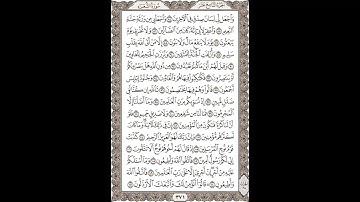 الجزء التاسع عشر سورة الشعراء
وَاجْعَل لِّي لِسَانَ صِدْقٍ فِي الْآخِرِينَ ٨٤ وَاجْعَلْنِي مِن وَرَثَةِ جَنَّةِ
النَّعِيمِ ٨٥ وَاغْفِرْ لِأَبِي إِنَّهُ كَانَ مِنَ الضَّالِّينَ ٨٦ وَلَا تُخْزِنِي يَوْمَ
يُبْعَثُونَ ٨٧ يَوْمَ لَا يَنفَعُ مَالٌ وَلَا بَنُونَ ٨٨ إِلَّا مَنْ أَتَى اللَّهَ بِقَلْبٍ
سَلِيمٍ ٨٩ وَأُزْلِفَتِ الْجَنَّةُ لِلْمُتَّقِينَ ٩٠ وَبُرِّزَتِ الْجَحِيمُ لِلْغَاوِينَ
٩١ وَقِيلَ لَهُمْ أَيْنَ مَا كُنتُمْ تَعْبُدُونَ ٩٢ مِن دُونِ اللَّهِ هَلْ يَنصُرُونَكُمْ
أَوْ يَنتَصِرُونَ ٩٣ فَكُبْكِبُوا فِيهَا هُمْ وَالْغَاوُونَ ٩٤ وَجُنُودُ إِبْلِيسَ
أَجْمَعُونَ ٩٥ قَالُوا وَهُمْ فِيهَا يَخْتَصِمُونَ ٩٦ تَاللَّهِ إِن كُنَّا
لَفِي ضَلَالٍ مُّبِينٍ ٩٧ إِذْ نُسَوِّيكُم بِرَبِّ الْعَالَمِينَ ٩٨ وَمَا أَضَلَّنَا إِلَّا
الْمُجْرِمُونَ ٩٩ فَمَا لَنَا مِن شَافِعِينَ ١٠٠ وَلَا صَدِيقٍ حَمِيمٍ ١٠١ فَلَوْ أَنَّ
لَنَا كَرَّةً فَنَكُونَ مِنَ الْمُؤْمِنِينَ ١٠٢ إِنَّ فِي ذَٰلِكَ لَآيَةً وَمَا كَانَ
أَكْثَرُهُم مُّؤْمِنِينَ ١٠٣ وَإِنَّ رَبَّكَ لَهُوَ الْعَزِيزُ الرَّحِيمُ ١٠٤ كَذَّبَتْ
قَوْمُ نُوحٍ الْمُرْسَلِينَ ١٠٥ إِذْ قَالَ لَهُمْ أَخُوهُمْ نُوحٌ أَلَا تَتَّقُونَ ١٠٦
إِنِّي لَكُمْ رَسُولٌ أَمِينٌ ١٠٧ فَاتَّقُوا اللَّهَ وَأَطِيعُونِ ١٠٨ وَمَا أَسْأَلُكُمْ
عَلَيْهِ مِنْ أَجْرٍ إِنْ أَجْرِيَ إِلَّا عَلَىٰ رَبِّ الْعَالَمِينَ ١٠٩ فَاتَّقُوا اللَّهَ
وَأَطِيعُونِ ١١٠ قَالُوا أَنُؤْمِنُ لَكَ وَاتَّبَعَكَ الْأَرْذَلُونَ ١١١
٣٧١